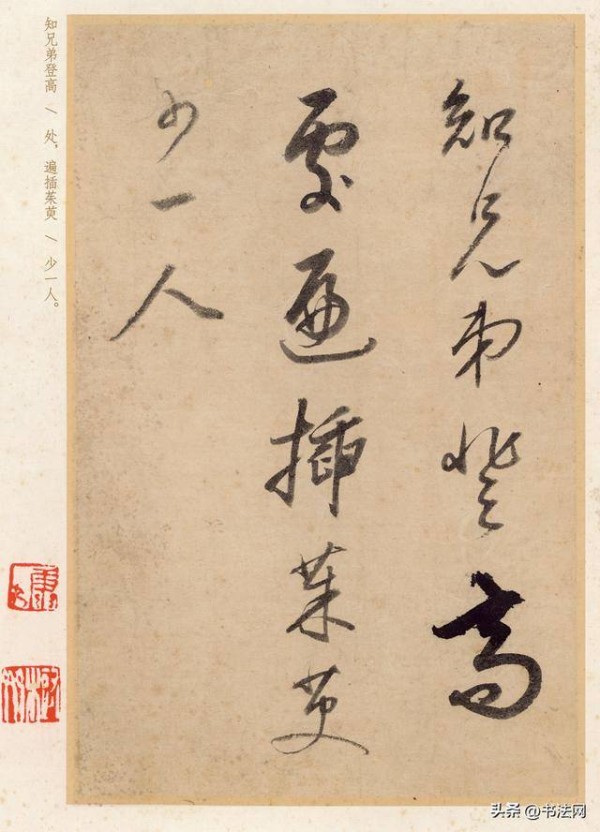 知兄弟登高
處遍插茱萸
少一人
知兄弟登高 \ 处,遍插茱萸 \ 少一人。
头条 @书法网